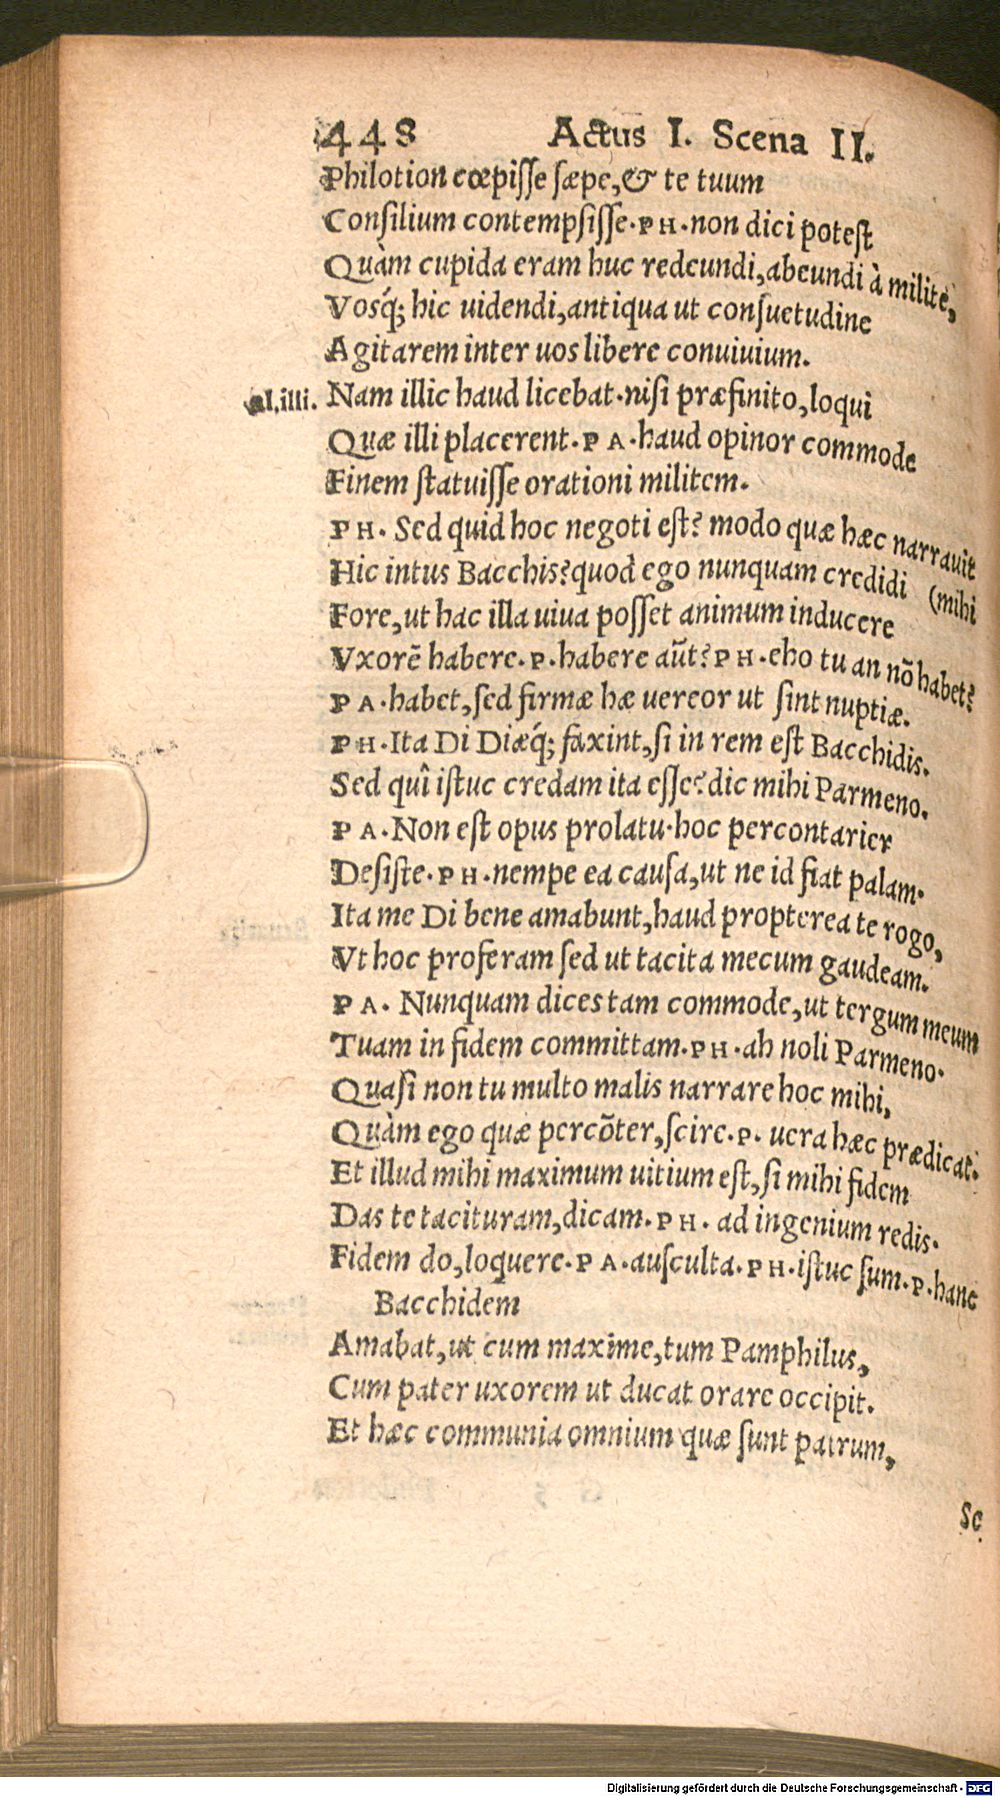 448 Actus I. Scena II.
Philotion cœpisse sæpe,& te tuum
Consilium contempsisse.PH.non dici potest
Quàm cupida eram huc redeundi,abeundi à milite,
Vosq́; hic uidendi,antiqua ut consuetudine
Agitarem inter uos libere conuiuium.
al.illi. Nam illic haud licebat.nisi præfinito,loqui
Quæ illi placerent.PA.haud opinor commode
Finem statuisse orationi militem.
PH. Sed quid hoc negoti est? modo quæ hæc narrauit
Hic intus Bacchis?quod ego nunquam credidi (mihi
Fore,ut hac illa uiua posset animum inducere
Vxorẽ habere.P.habere aũt?PH.eho tu an nõ habet?
PA.habet,sed firmæ hæ uereor ut sint nuptiæ.
PH.Ita Di Diæq́; faxint,si in rem est Bacchidis.
Sed quî istuc credam ita esse?dic mihi Parmeno.
PA.Non est opus prolatu.hoc percontarier
Desiste.PH.nempe ea causa,ut ne id fiat palam.
Ita me Di bene amabunt,haud propterea te rogo,
Vt hoc proferam sed ut tacita mecum gaudeam.
PA. Nunquam dices tam commode,ut tergum meum
Tuam in fidem committam.PH.ah noli Parmeno.
Quasi non tu multo malis narrare hoc mihi,
Quàm ego quæ percõter,scire.P. uera hæc prædicat:
Et illud mihi maximum uitium est,si mihi fidem
Das te tacituram,dicam.PH. ad ingenium redis.
Fidem do,loquere.PA.ausculta.PH.istuc sum.P.hanc
Bacchidem
Amabat,ut cum maxime,tum Pamphilus,
Cum pater uxorem ut ducat orare occipit.
Et hæc communia omnium quæ sunt patrum,
Se
Digitalisierung gefördert durch die Deutsche Forschungsgemeinschaft - DFG